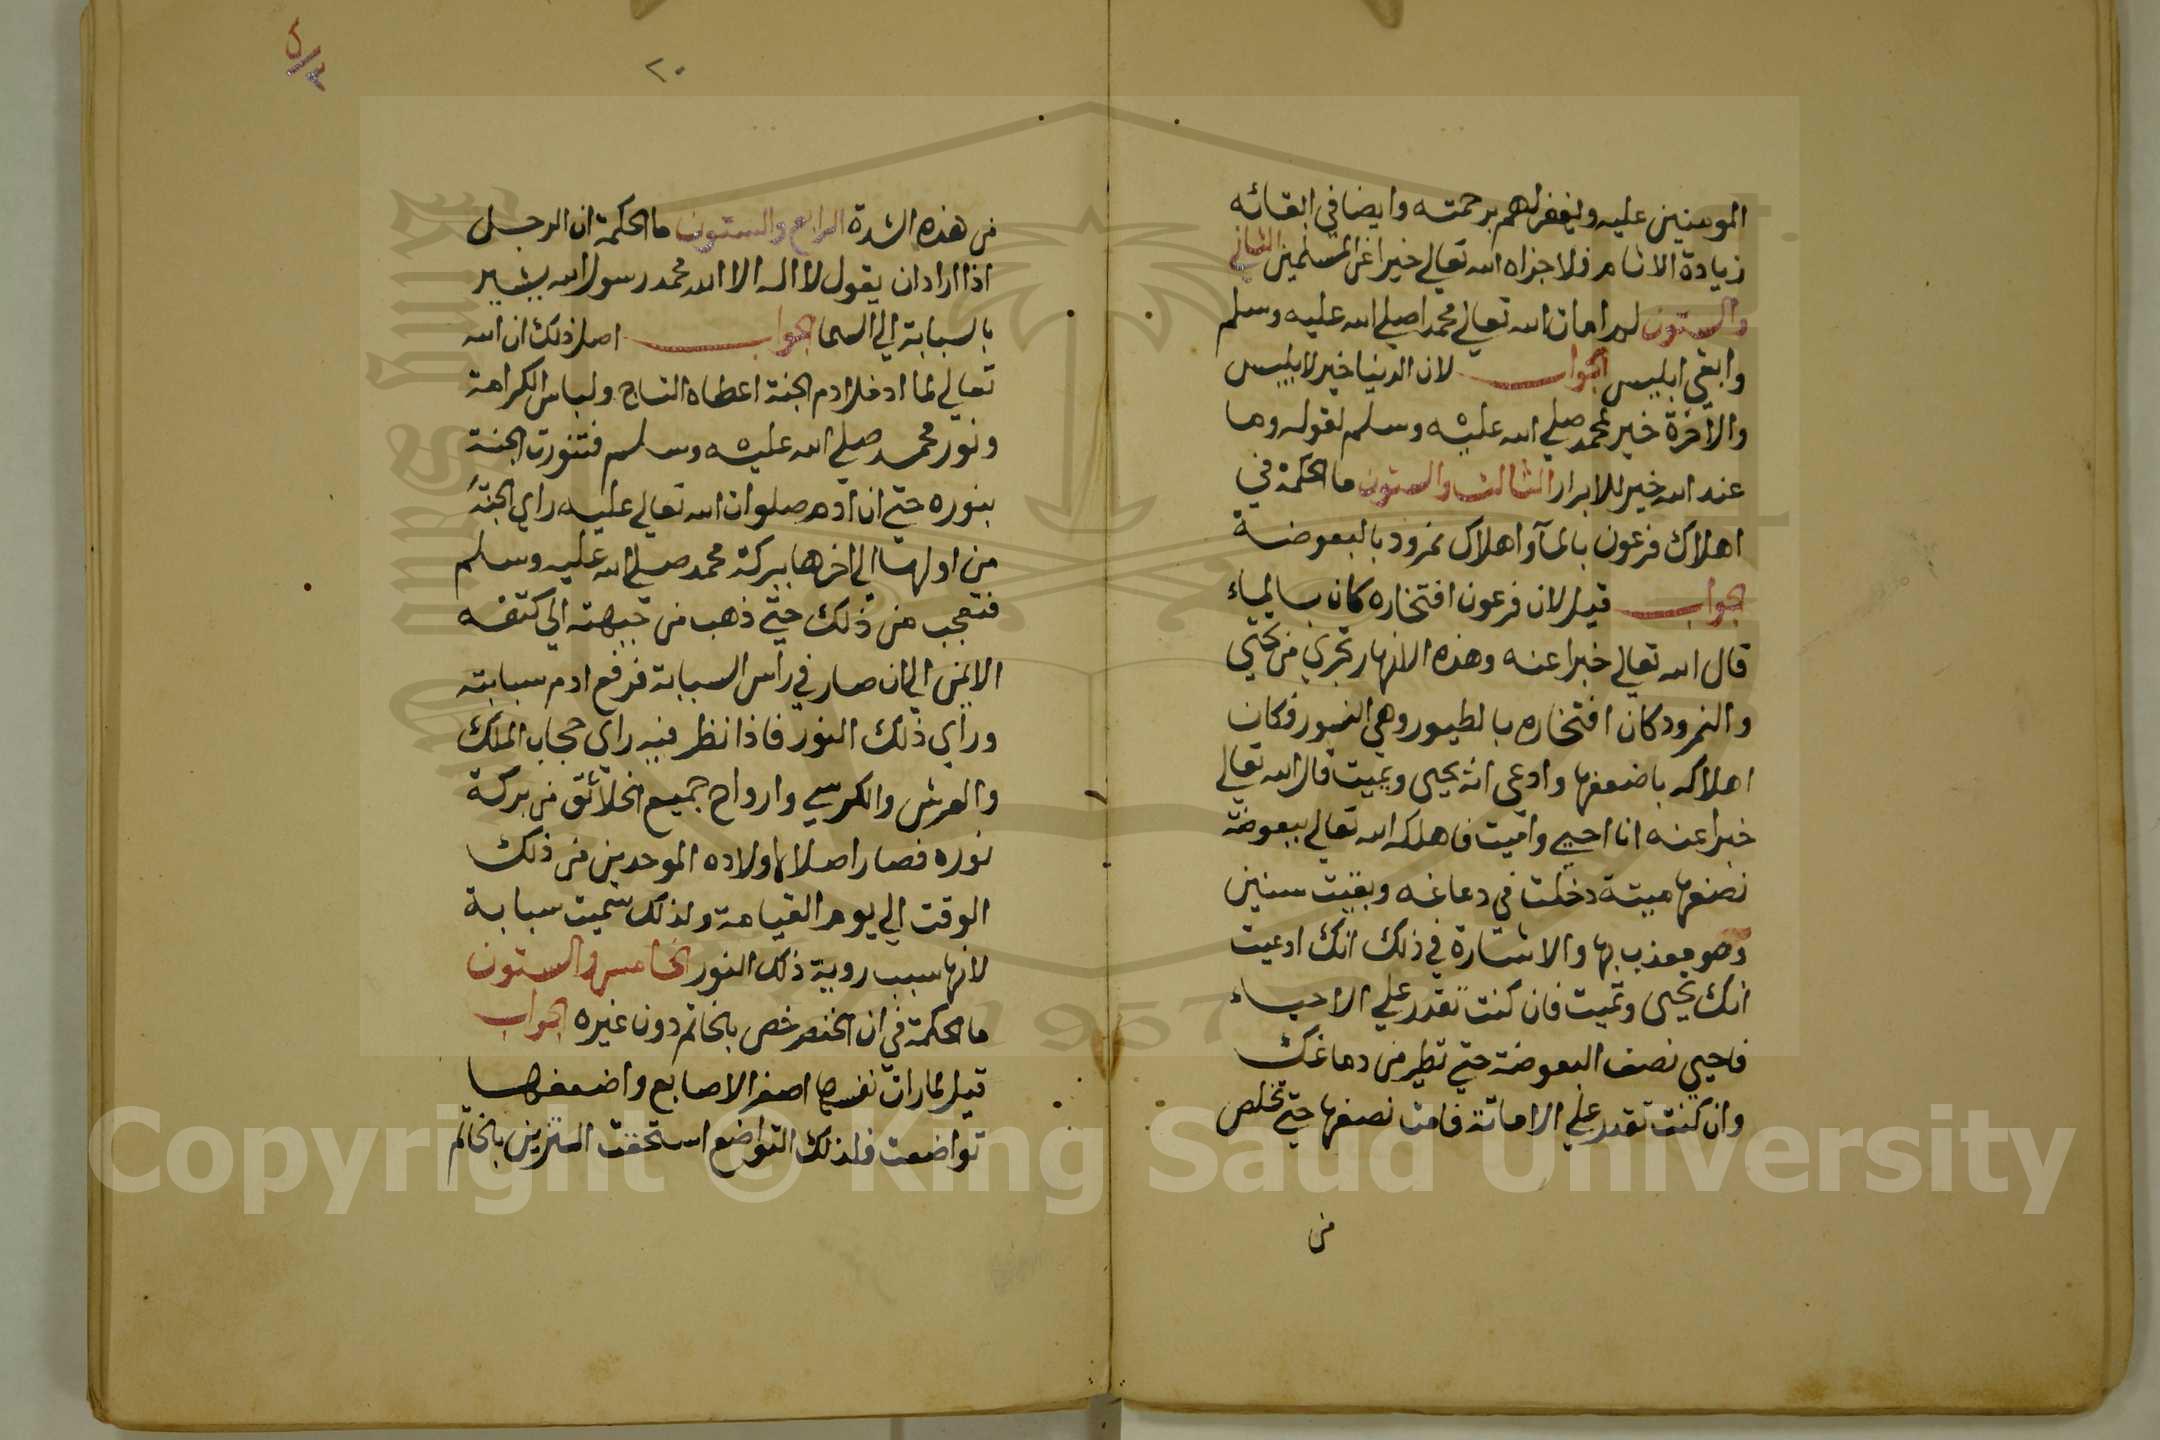 المومنين عليه وليغفر لهم برحمته وايضا في ابقائه
زيادة الاثام فلا جزاه الله تعالى خيرا عن المسلمين الثاني
والستون لم امات الله تعالي محمدا صلي الله عليه وسلم
وابقي ابليس الجواب لان الدنيا خير لابليس
والاخرة خير لمحمد صلي الله عليه وسلم لقوله وما
عند الله خير للابرار الثالث والستون ما الحكمة في
اهلاك فرعون بالمآ واهلاك نمرود بالبعوضة
جواب قيل لان فرعون افتخاره كان بالماء
قال الله تعالي خبرا عنه وهذه الانهار تجري من تحتي
والنمرود كان افتخاره بالطيور وهي النسور فكان
اهلاكه باضعفها وادعى انه يحيى ويميت قال الله تعالي
خبرا عنه انا احيي واميت فاهلكه الله تعالي ببعوضة
نصفها ميتة دخلت في دماغه وبقيت سنين
وهو معذب بها والاشارة في ذلك انك ادعيت
انك تحيى وتميت فان كنت تقدر علي الاحياء
فاحيي نصف البعوضة حتي تطير من دماغك
وان كنت تقدر علي الاماتة فامت نصفها حتي تخلص
من
٢٠
من هذه الشدة الرابع والستون ما الحكمة ان الرجل
اذا اراد ان يقول لا اله الا الله محمد رسول الله يشير
بالسبابة الي السما الجواب اصل ذلك ان الله
تعالي لما ادخل ادم الجنة اعطاه التاج ولباس الكرامة
ونور محمد صلي الله عليه وسلم فتنورت الجنة
بنوره حتي ان ادم صلوات الله تعالي عليه راي الجنة
من اولها الي اخرها ببركة محمد صلي الله عليه وسلم
فتعجب من ذلك حتي ذهب من جبهته الي كتفه
الايمن الي ان صار في راس السبابة فرفع ادم سبابته
وراي ذلك النور فاذا نظر فيه راي حجاب الملك
والعرش والكرسي وارواح جميع الخلائق من بركة
نوره فصار اصلا لاولاده الموحدين من ذلك
الوقت الي يوم القيامة ولذلك سميت سبابة
لانها سبب روية ذلك النور الخامس والستون
ما الحكمة في ان الخنصر خص بالخاتم دون غيره الجواب
قيل لما رات نفسها اصغر الاصابع واضعفها
تواضعت فلذلك التواضع استحقت التزيين بالخاتم
1957
Copyright © King Saud University